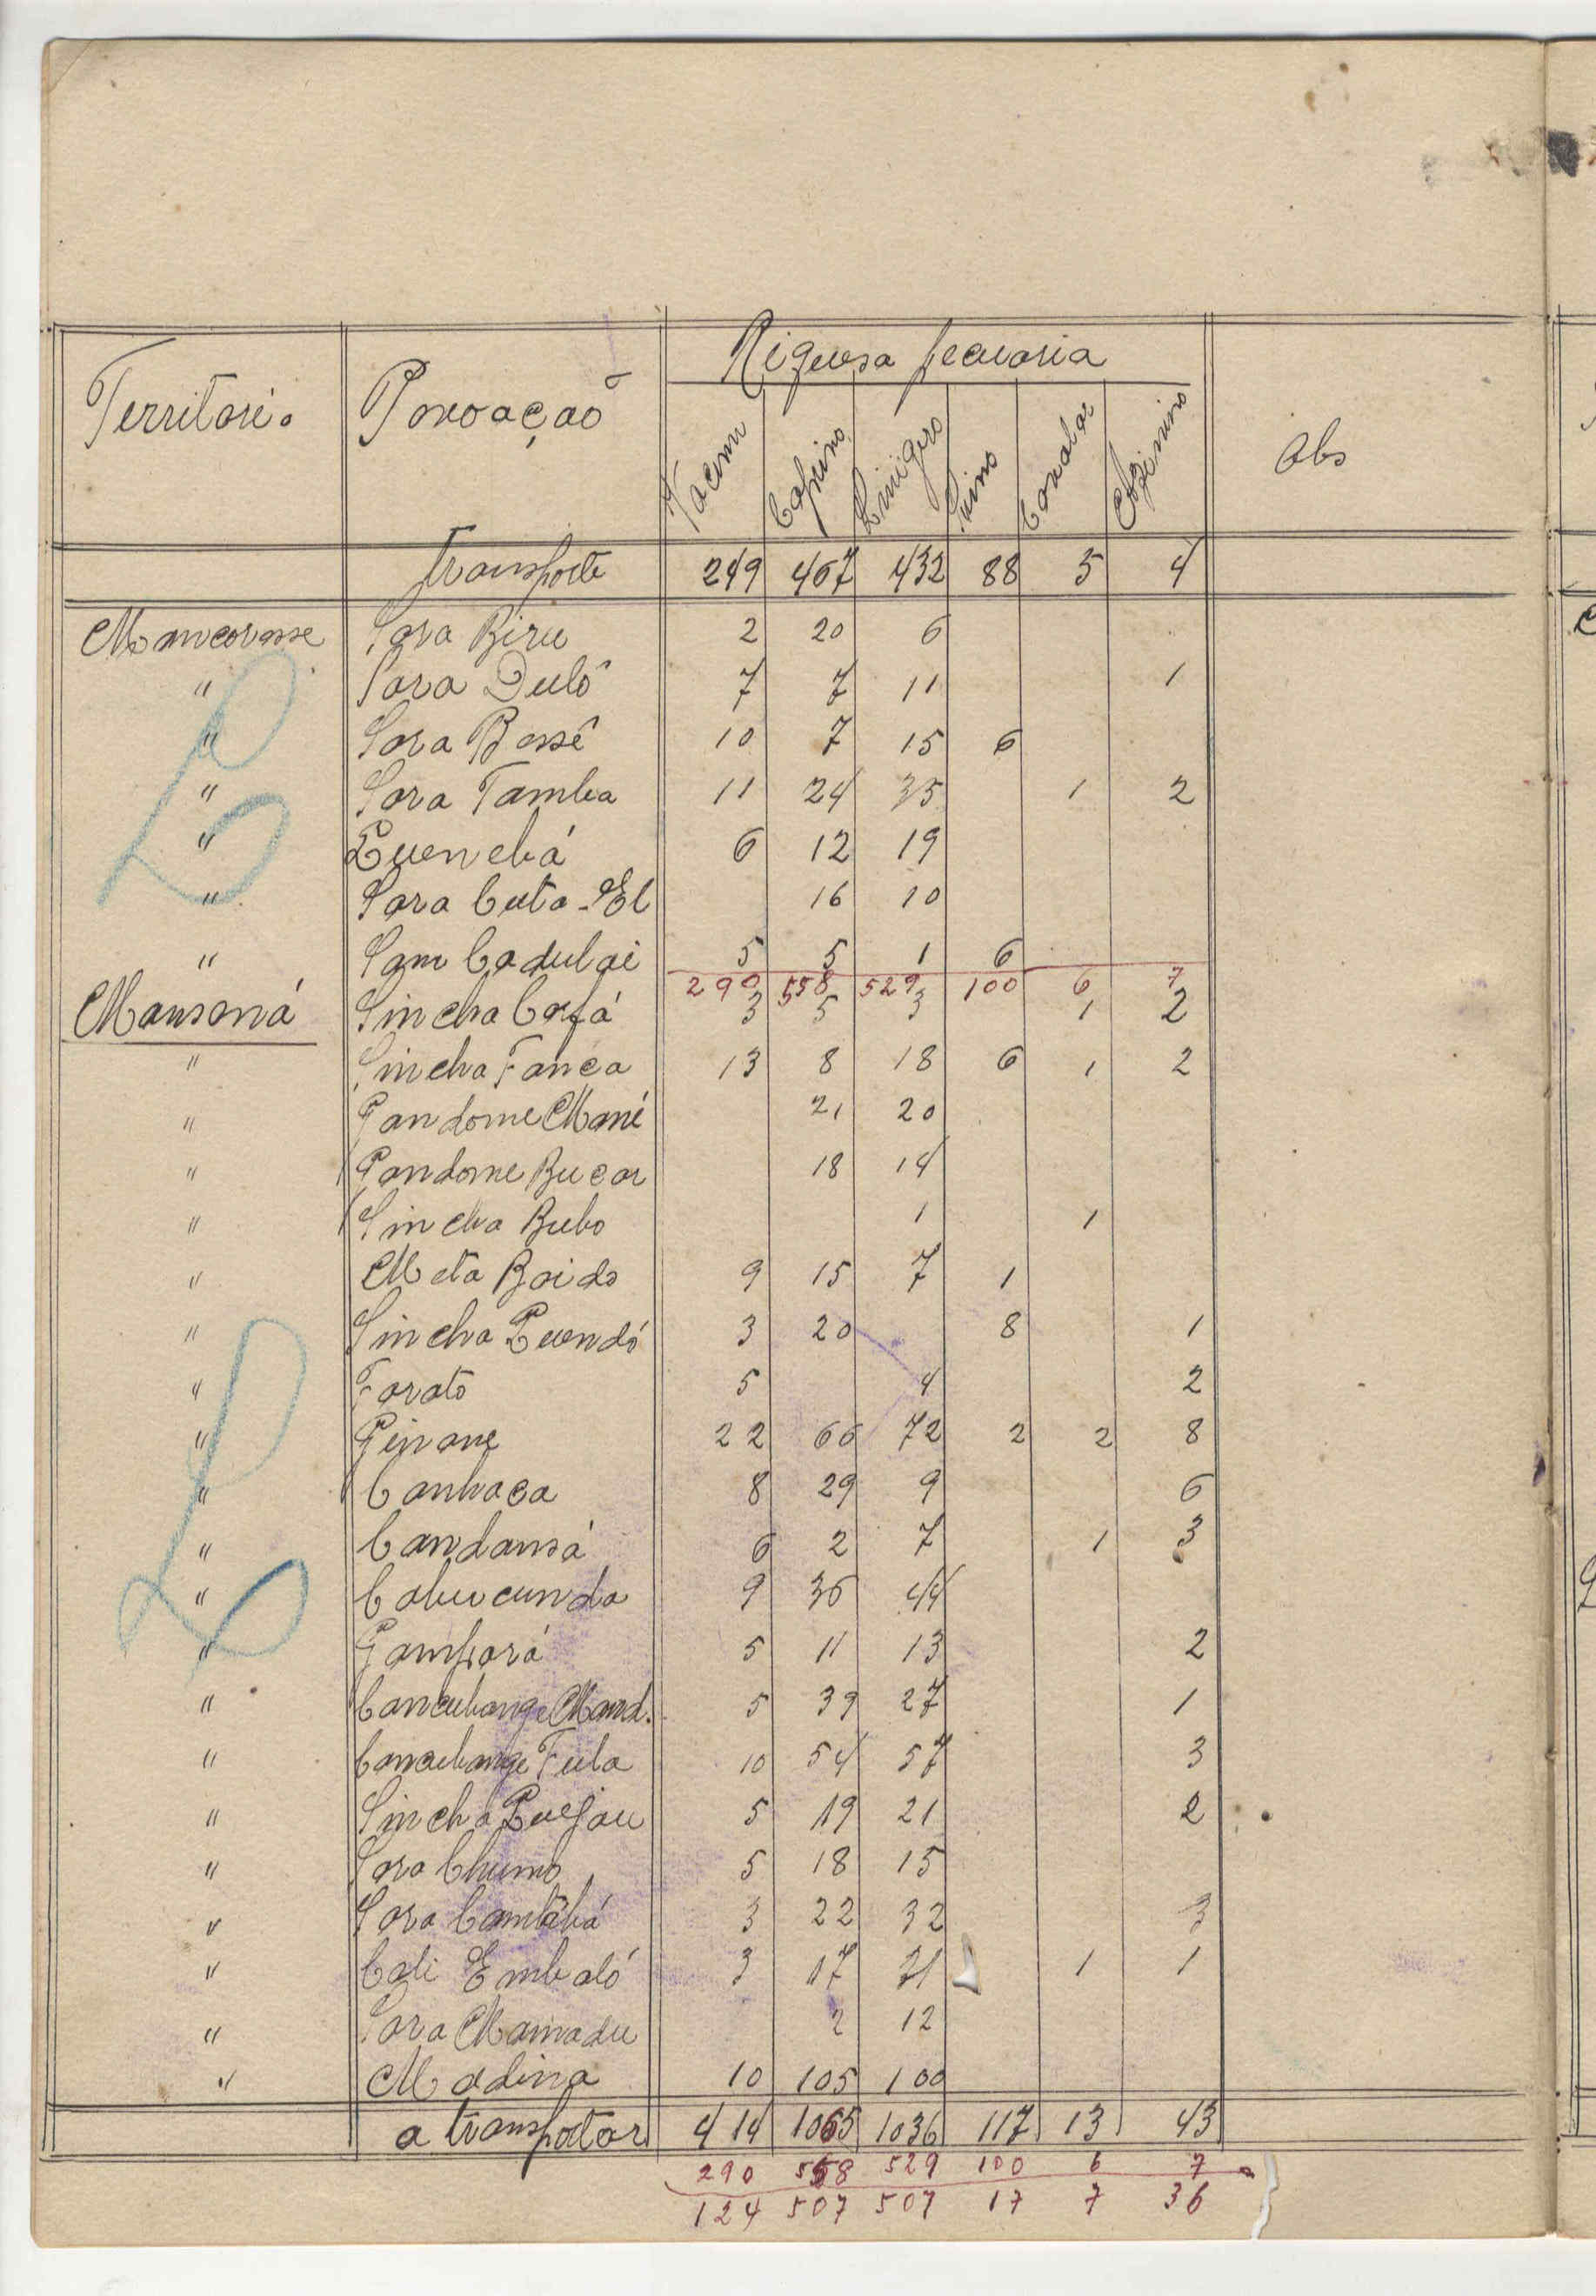 Riquesa pecuaria
Territorio Povoação Vacum Caprino Lanigero Suino Cavalar Azinino Obs
transporte 249 467 432 88 5 4
Mancorosse Sara Biru 2 20 6
" Sara Duló 7 7 11 1
" Sara Bossé 10 7 15 6
" Sara Tamba 11 24 35 1 2
" Quenebá 6 12 19
" Sara Cuta-El 16 10
" Sam Cadulai 5 5 1 6
290 558 529 100 6 7
Mansoná Sincha Cafá 3 5 3 1 2
" Sincha Fanca 13 8 18 6 1 2
" Gandome Mané 21 20
" Gandome Bucar 18 14
" Sincha Bubo 1 1
" Meta Boido 9 15 7 1
" Sincha Quendó 3 20 8 1
" Farato 5 4 2
" Genane 22 66 72 2 2 8
" Canhaca 8 29 9 6
" Candansá 6 2 7 1 3
" Cabucunda 9 36 44
" Gampará 5 11 13 2
" Cancubange Mand. 5 39 27 1
" Cancubange Fula 10 54 57 3
" Sincha Quejau 5 19 21 2
" Sara Chumo 5 18 15
" Sara Cambabá 3 22 32 3
" Cali Embaló 3 17 21 1 1
" Sara Mamadu 2 12
" Madina 10 105 100
a transportar 414 1065 1036 117 13 43
290 558 529 100 6 7
124 507 507 17 7 36